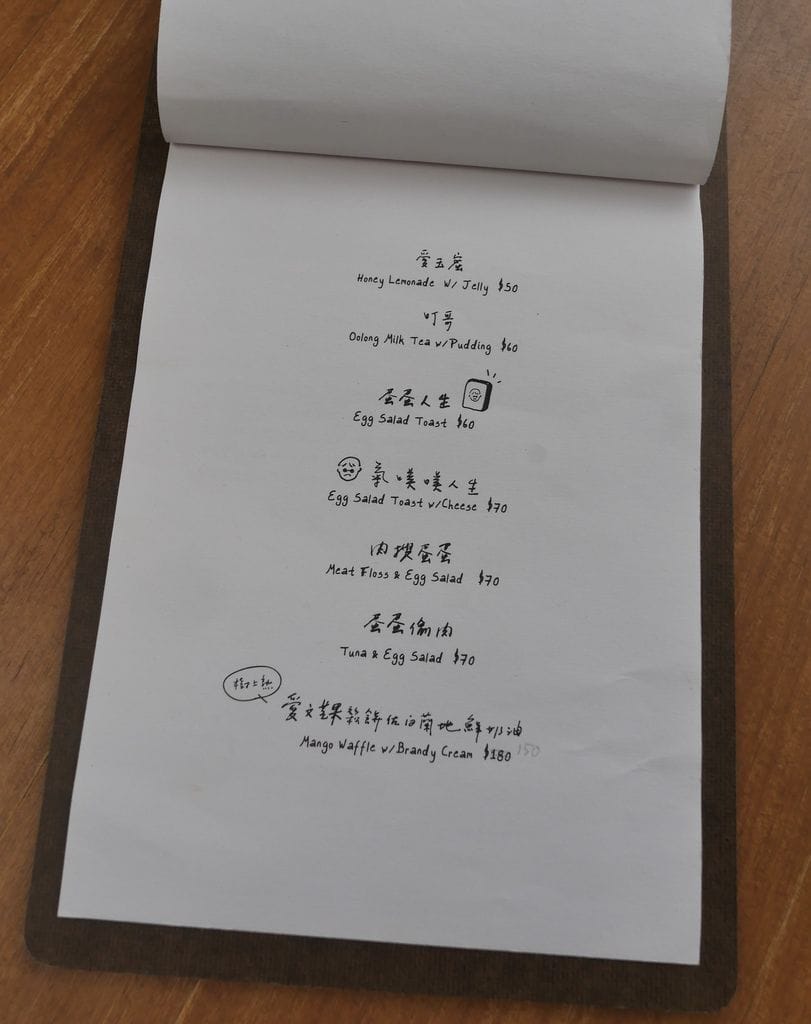 愛玉
Honey Lemonade w/ Jelly $50
叮哥
Oolong Milk Tea w/Pudding $60
蛋蛋人生
Egg Salad Toast $60
氣噗噗人生
Egg Salad Toast w/Cheese $70
肉攪蛋蛋
Meat Floss & Egg Salad $70
蛋蛋偷肉
Tuna & Egg Salad $70
樹上熟
愛文芒果鬆餅佐白蘭地鮮奶油
Mango Waffle w/Brandy Cream $180 150